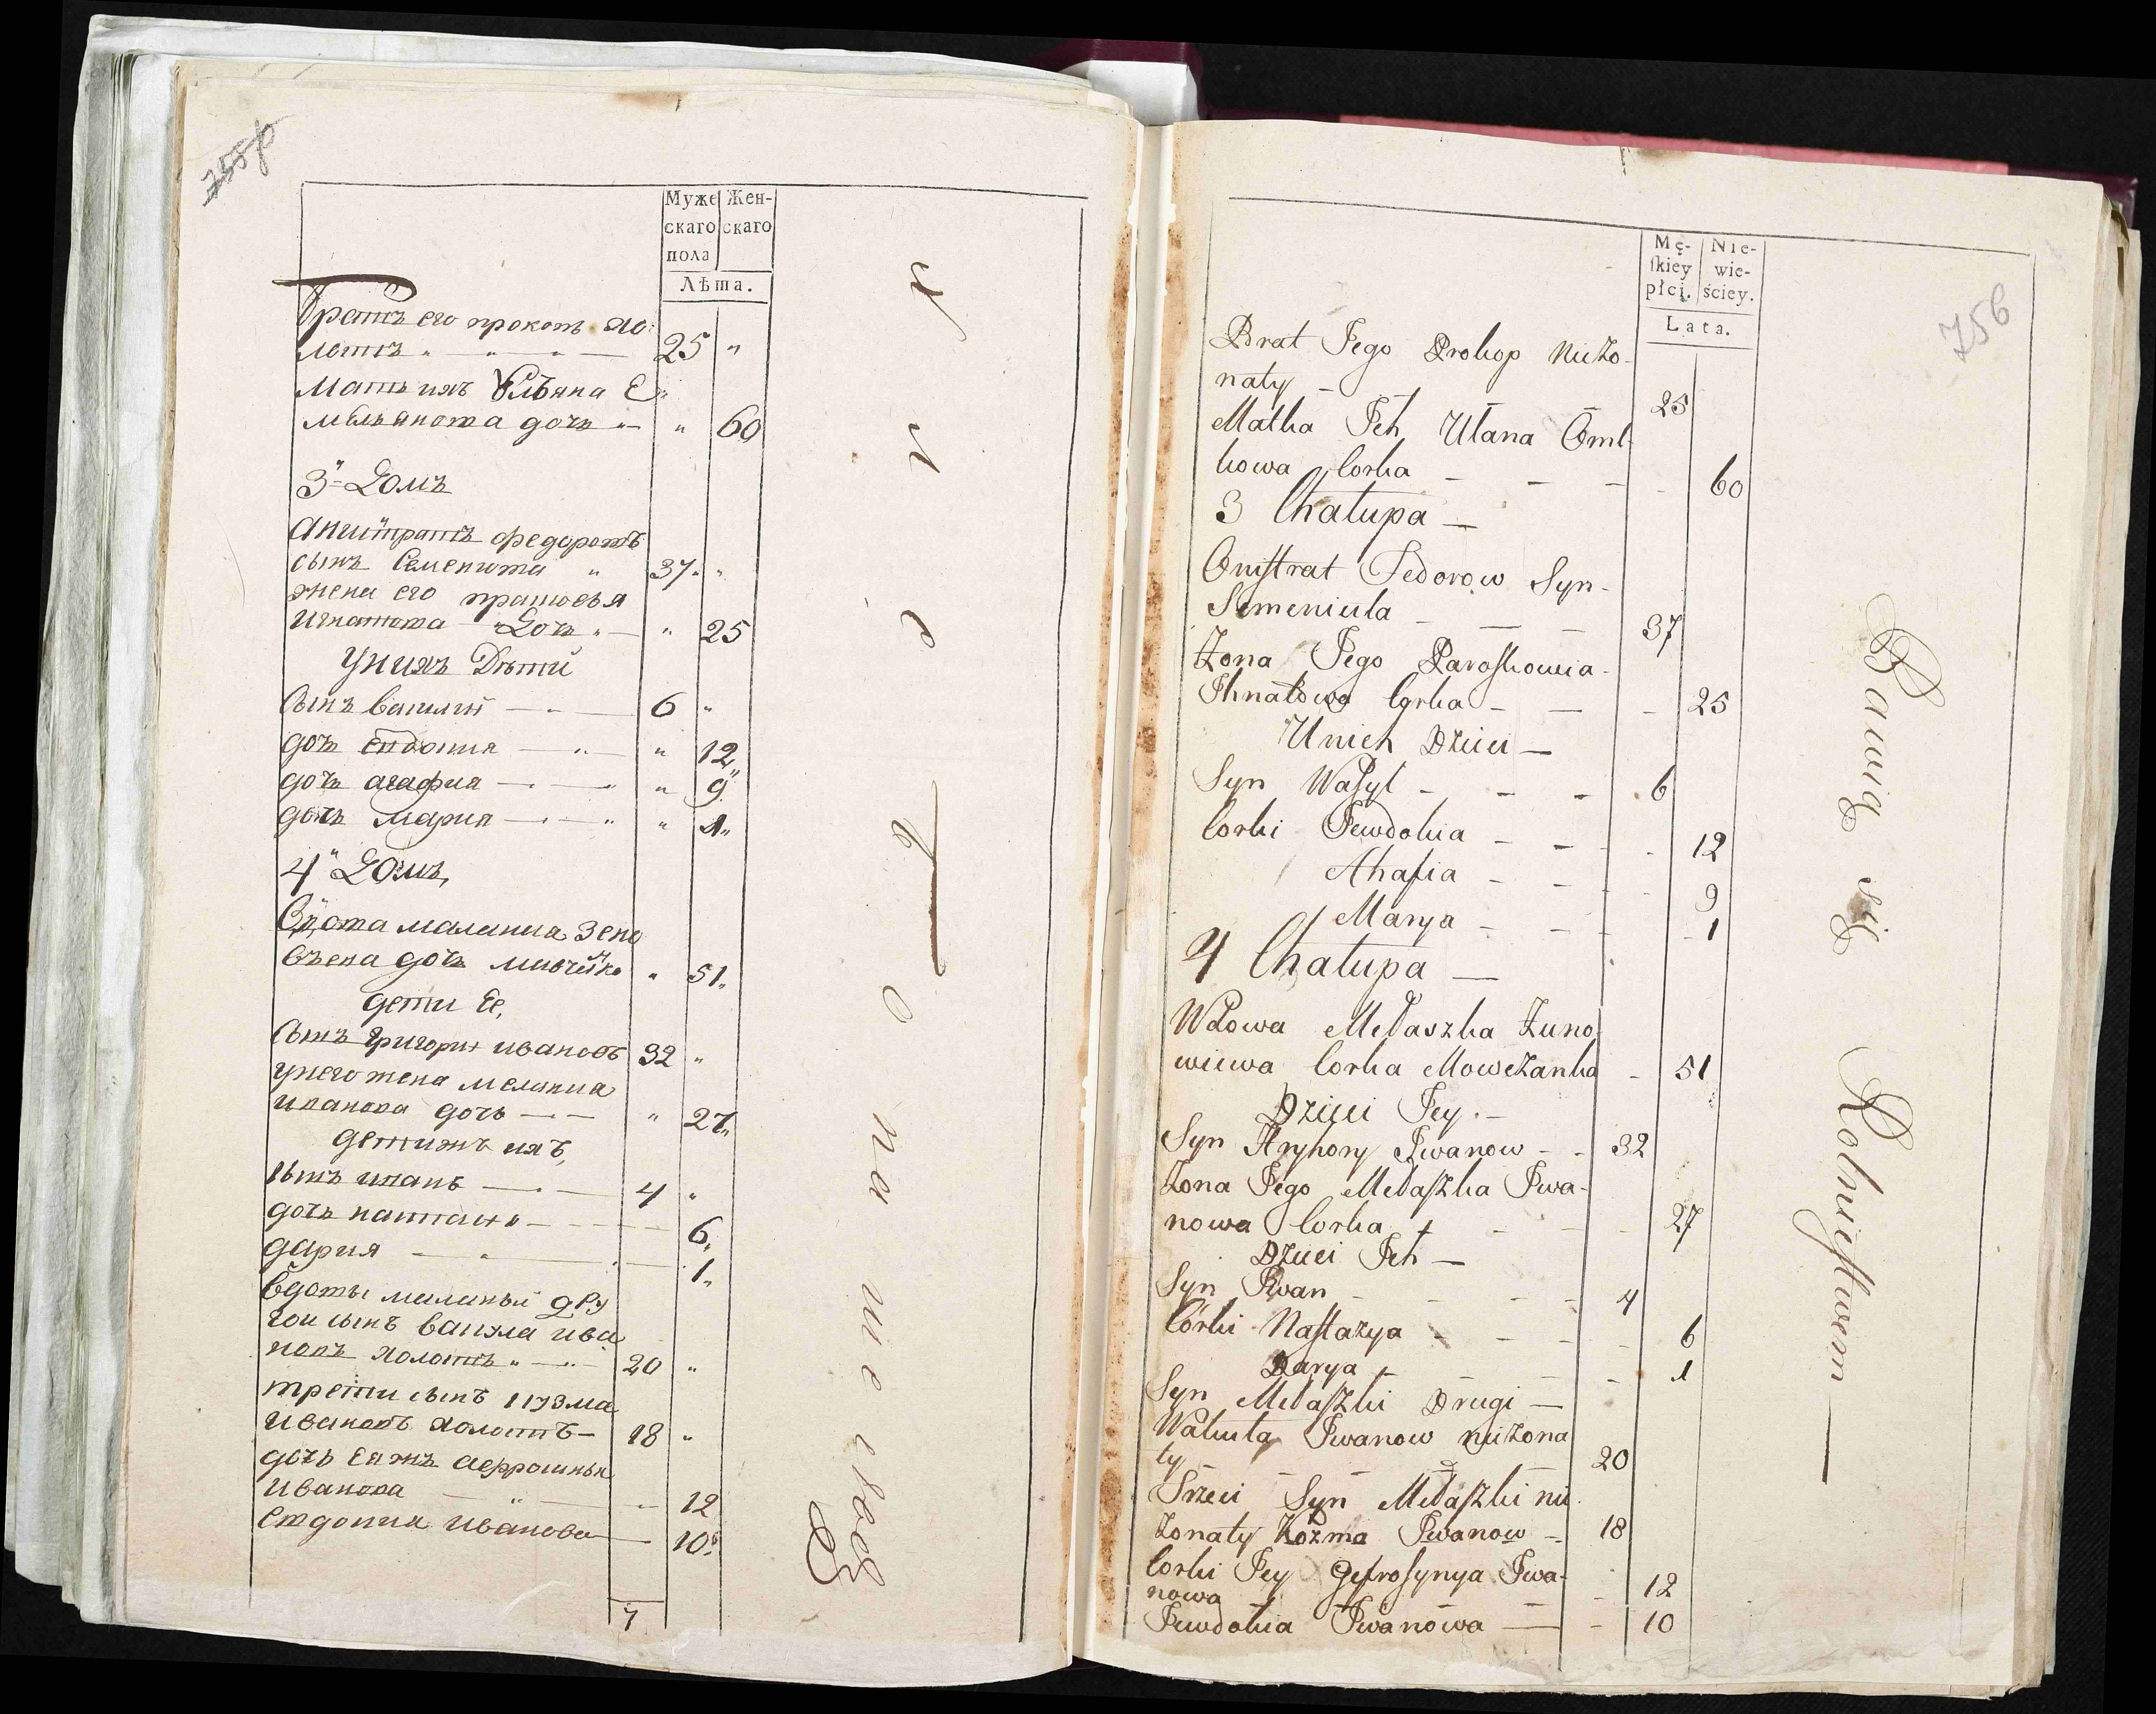 755р
Муже Жен-
скаго скаго
пола
Лѣта.
Братъ его прокопъ хо
лостъ 25 "
Мать ихъ Ульяна Е
мельянова дочь " 60
3" Домъ
Анистратъ федоровъ
сынъ Семенюта " 37 "
жена его прасковья
Игнатова Дочь " 25
У них Дѣти
Сынъ василий 6 "
дочь евдокия " 12
дочь агафия " 9
дочь мария " 1
4" Домъ,
Вдова малания Зено
въева дочь " 51
дети Ее,
Сынъ Григорий ивановъ 32 "
унего жена мелания
иванова дочь " 27
детижъ ихъ,
сынъ иванъ 4 "
дочь настасия 6
дария 1
вдовы миланьи дру
гой сынъ вакула ива
новъ холостъ 20 "
трети сынъ кузма
Ивановъ холостъ 18 "
дочь еяжъ
Иванова 12
Евдокия Иванова 10
7
756
Mę- Nie-
ſkiey wie-
płci. ściey.
Lata.
Brat Jego Prokop Nieżo-
naty 25
Matka Jch Ulana Omel-
kowa Corka 60
3 Chałupa
Onistrat Fedorow Syn
Semeniuta 37
Żona Jego Paroskowia
Jhnatowa Corka 25
U nich Dzieci
Syn Wasyl 6
Corki Jewdokia 12
Ahafia 9
Marya 1
4 Chałupa
Wdowa Mełaszka Zyno
wiewa Corka 51
Dzieci Jey
Syn Hryhory Jwanow 32
Żona Jego Mełaszka Jwa-
nowa Corka 27
Dzieci Jch
Syn Jwan 4
Córki Nastazya 6
Darya 1
Syn Mełaszki Drugi
Wakuła Jwanow nieżona
ty 20
Trzeci Syn Mełaszki nie
żonaty Kozma Jwanow 18
Corki Jey Jefrosynya Jwa-
nowa 12
Jewdokia Jwanowa 10
Bawią się Rolnictwem